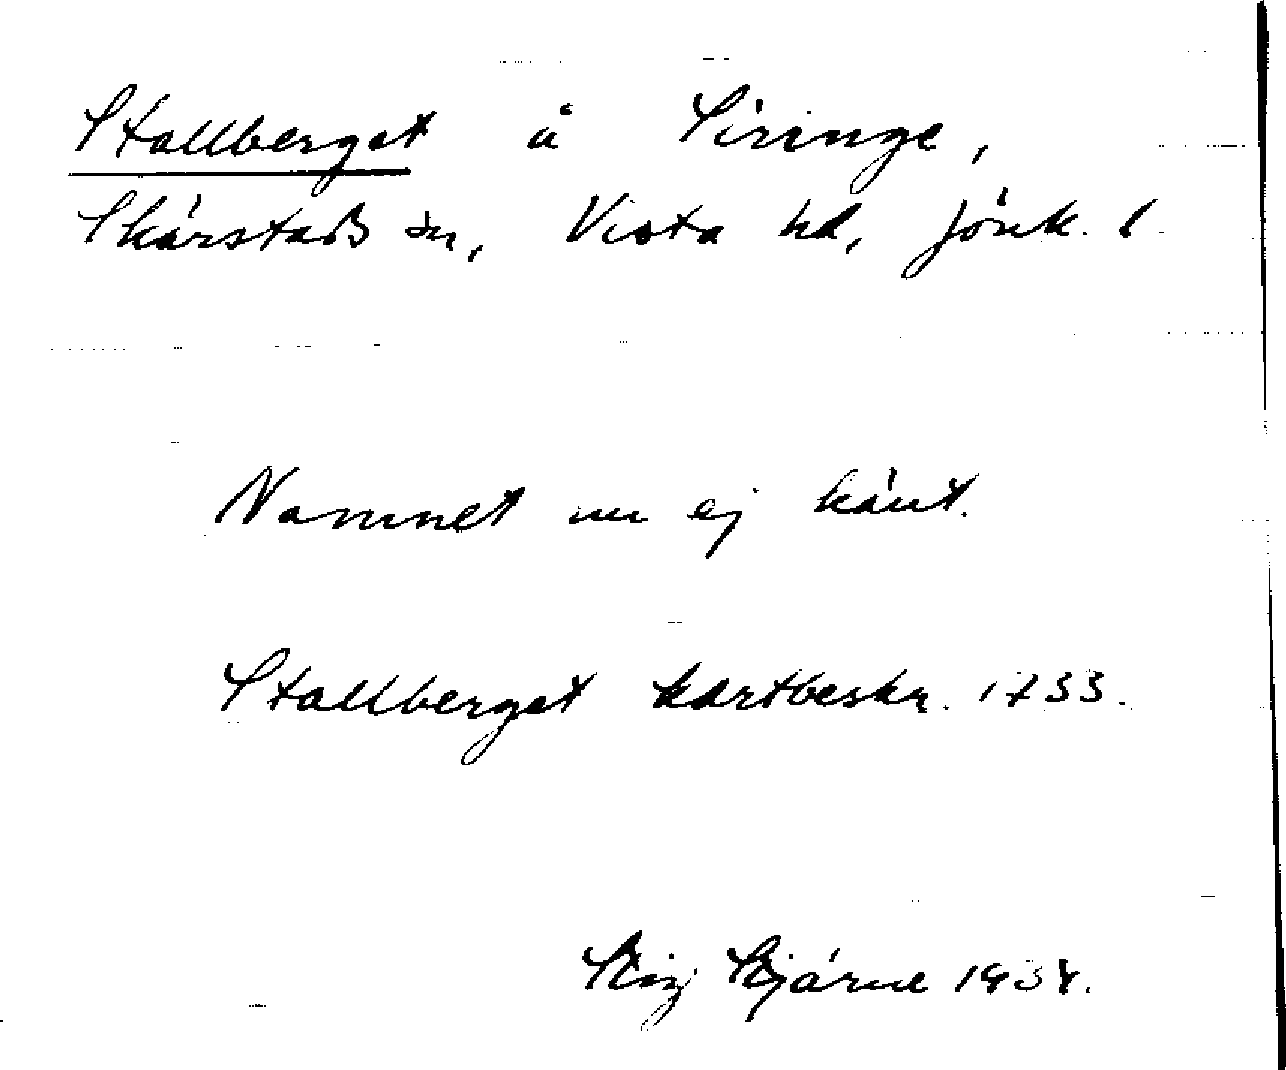 Stallberget å Siringe,
Skärstads sn, Vista hd, Jönk. l.
Namnet nu ej känt.
Stallberget kartbeskr. 1733.
Stig Stjärne 1934.